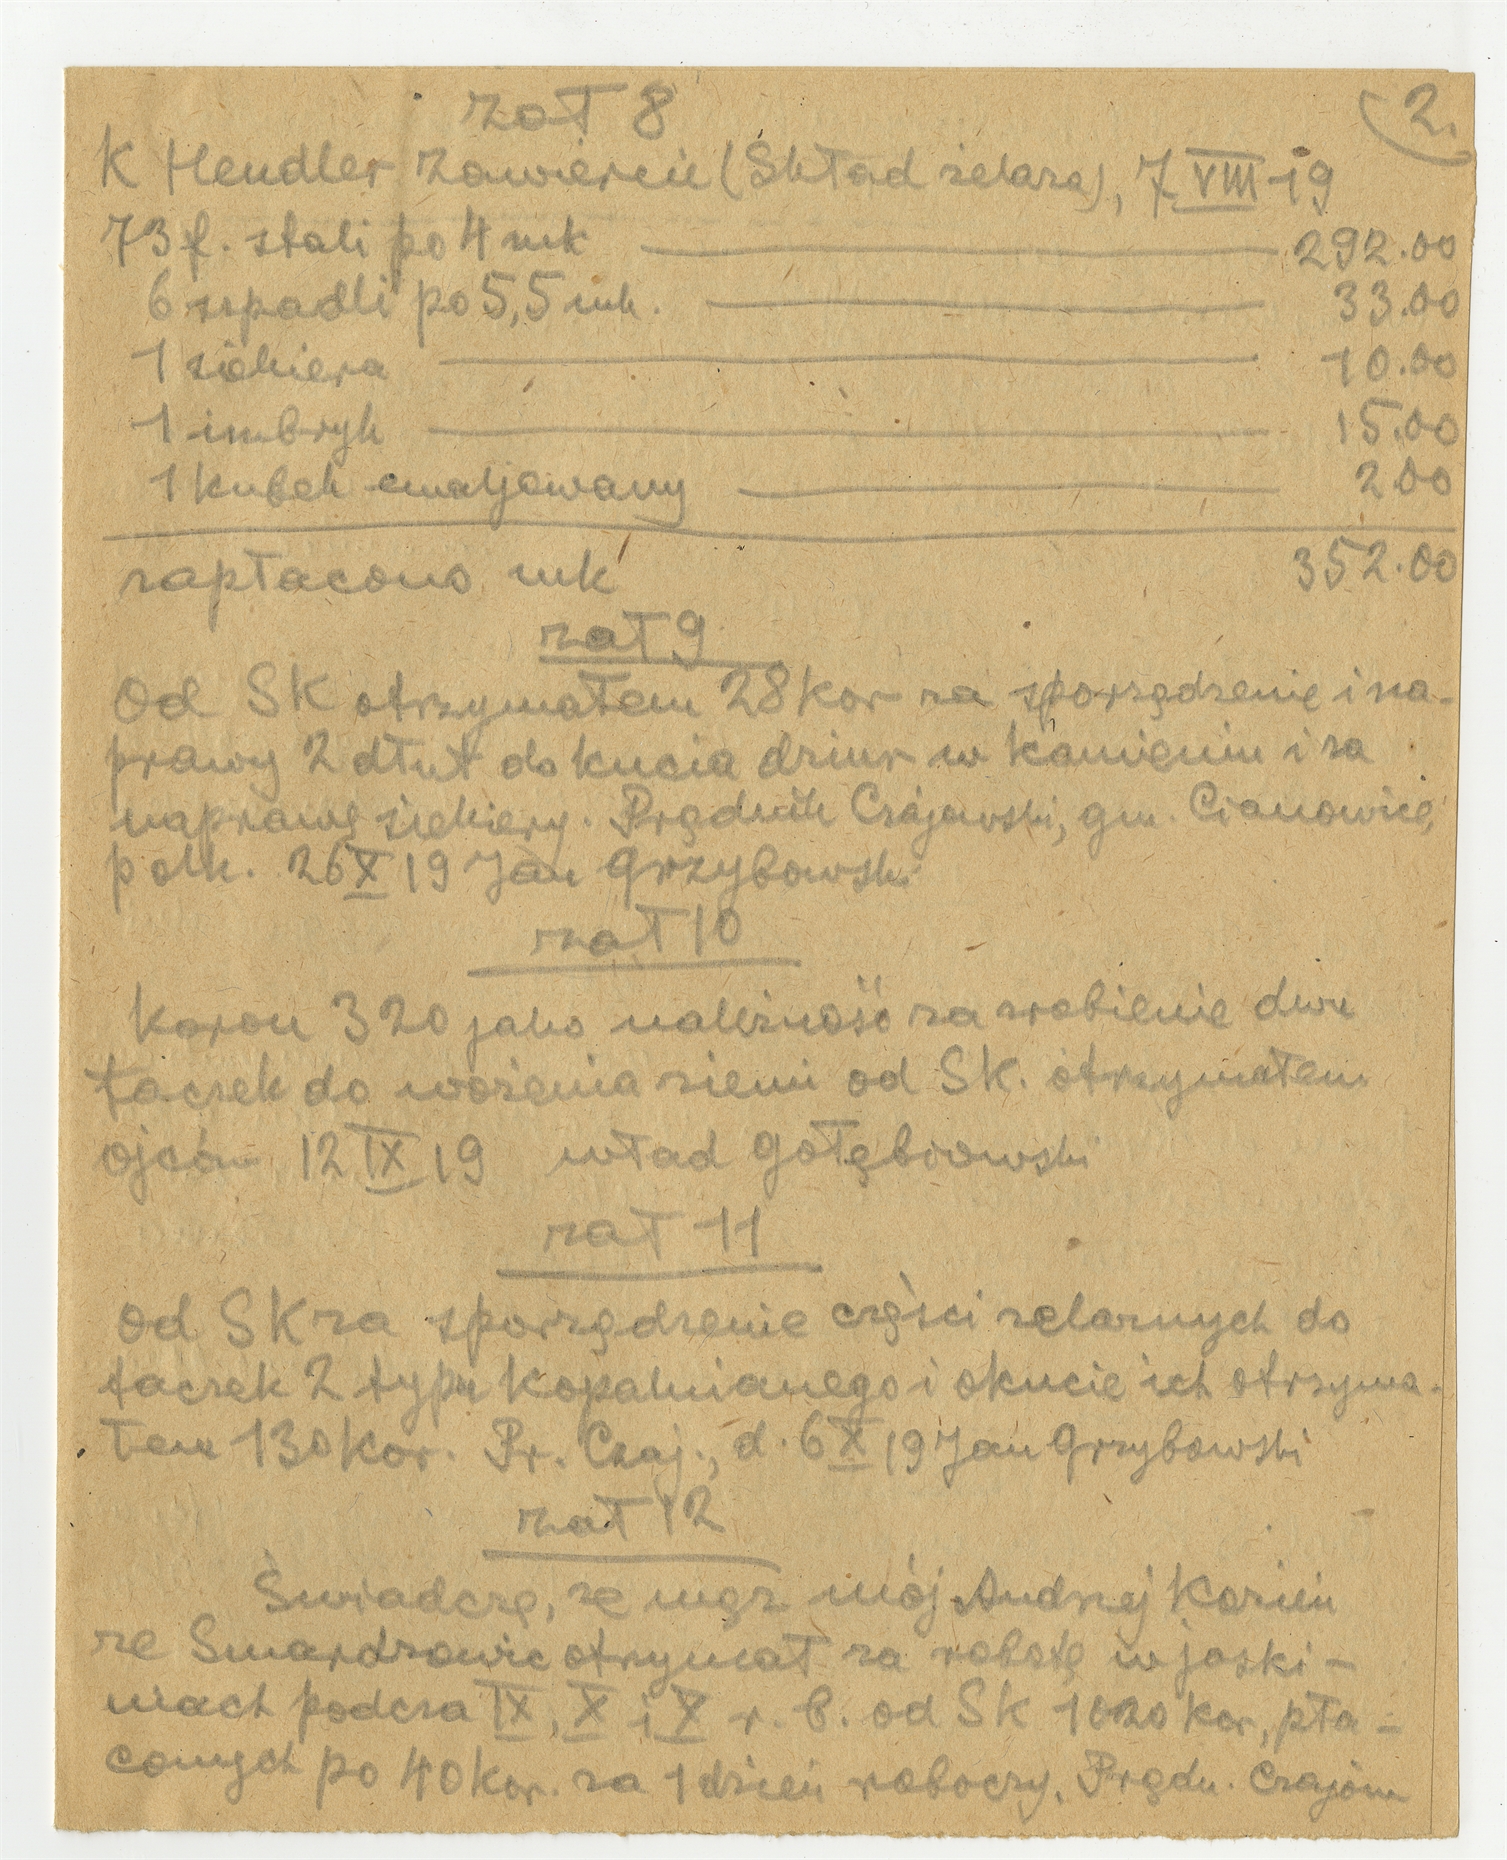 zał 8
2.
K Hendler Zawiercie (Skład żelaza), 7 VIII 19
73 f. stali po 4 mk 292.00
6 szpadli po 5,5 mk. 33.00
1 siekiera 10.00
1 imbryk 15.00
1 kubek emaljowany 2.00
zapłacono mk 352.00
zał 9
Od SK otrzymałem 28 kor za sporządzenie i na-
prawy 2 dłut do kucia dziur w kamieniu i za
naprawę siekiery. Prądnik Czajowski, gm. Cianowice
polk. 26 X 19 Jan Grzybowski
zał 10
Koron 320 jako należność za zrobienie dwu
taczek do wożenia ziemi od SK. otrzymałem
Ojców 12 IX 19 Wład Gołębiowski
zał 11
Od SK za sporządzenie części żelaznych do
taczek 2 typu kopalnianego i okucie ich otrzyma-
łem 130 kor. Pr. Czaj., d. 6 X 19 Jan Grzybowski
zał 12
Świadczę, że mąż mój Andrzej Kozień
ze Smardzowic otrzymał za robotę w jaski-
niach podcza IX, X i X r. b. od SK 1020 kor, pła-
conych po 40 kor. za 1 dzień roboczy. Prądn. Czajow